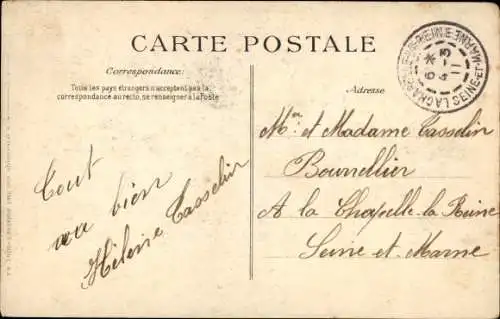 CARTE POSTALE
Correspondance:
Tous les pays étrangers n'acceptent pas la
correspondance au recto, se renseigner à la Poste
Tout
va bien
Hélène Casselin
Adresse
LA CHAPELLE-LA-REINE SEINE-ET-MARNE
6 *
4 - 3
11
Mr et Madame Casselin
Bourrellier
A la Chapelle-la Reine
Seine et Marne